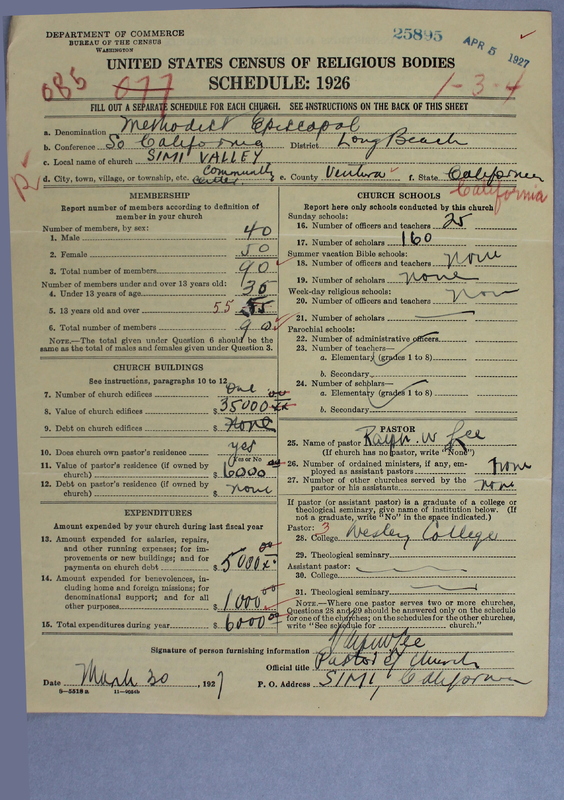 DEPARTMENT OF COMMERCE
BUREAU OF THE CENSUS
WASHINGTON
25895
APR 5 1927
UNITED STATES CENSUS OF RELIGIOUS BODIES
SCHEDULE: 1926
085 077
1-3-4
FILL OUT A SEPARATE SCHEDULE FOR EACH CHURCH. SEE INSTRUCTIONS ON THE BACK OF THIS SHEET
a. Denomination Methodist Episcopal
b. Conference So California District Long Beach
c. Local name of church SIMI VALLEY
d. City, town, village, or township, etc. Community Center e. County Ventura f. State California
R
California
MEMBERSHIP
Report number of members according to definition of
member in your church
Number of members, by sex:
1. Male 40
2. Female 50
3. Total number of members 90
Number of members under and over 13 years old:
4. Under 13 years of age 35
5. 13 years old and over 55 55
6. Total number of members 90
NOTE.—The total given under Question 6 should be
the same as the total of males and females given under Question 3.
CHURCH BUILDINGS
See instructions, paragraphs 10 to 12
7. Number of church edifices One
8. Value of church edifices $ 35000 00
9. Debt on church edifices $ None
10. Does church own pastor's residence yes
Yes or No
11. Value of pastor's residence (if owned by
church) $ 6000
12. Debt on pastor's residence (if owned by
church) $ none
EXPENDITURES
Amount expended by your church during last fiscal year
13. Amount expended for salaries, repairs,
and other running expenses; for im-
provements or new buildings; and for
payments on church debt $ 5000 00
14. Amount expended for benevolences, in-
cluding home and foreign missions; for
denominational support; and for all
other purposes $ 1000 00
15. Total expenditures during year $ 6000 00
CHURCH SCHOOLS
Report here only schools conducted by this church
Sunday schools:
16. Number of officers and teachers 25
17. Number of scholars 160
Summer vacation Bible schools:
18. Number of officers and teachers none
19. Number of scholars none
Week-day religious schools:
20. Number of officers and teachers
21. Number of scholars
Parochial schools:
22. Number of administrative officers
23. Number of teachers—
a. Elementary (grades 1 to 8)
b. Secondary
24. Number of scholars—
a. Elementary (grades 1 to 8)
b. Secondary
PASTOR
25. Name of pastor Ralph W Lee
(If church has no pastor, write "None")
26. Number of ordained ministers, if any, em-
ployed as assistant pastors None
27. Number of other churches served by the
pastor or his assistants none
If pastor (or assistant pastor) is a graduate of a college or
theological seminary, give name of institution below. (If
not a graduate, write "No" in the space indicated.)
Pastor: 3
28. College Wesley College
29. Theological seminary
Assistant pastor:
30. College
31. Theological seminary
NOTE.—Where one pastor serves two or more churches,
Questions 28 and 29 should be answered only on the schedule
for one of the churches; on the schedules for the other churches,
write "See schedule for church."
Signature of person furnishing information
Official title Pastor of Church
Date March 30, 1927 P. O. Address SIMI, California